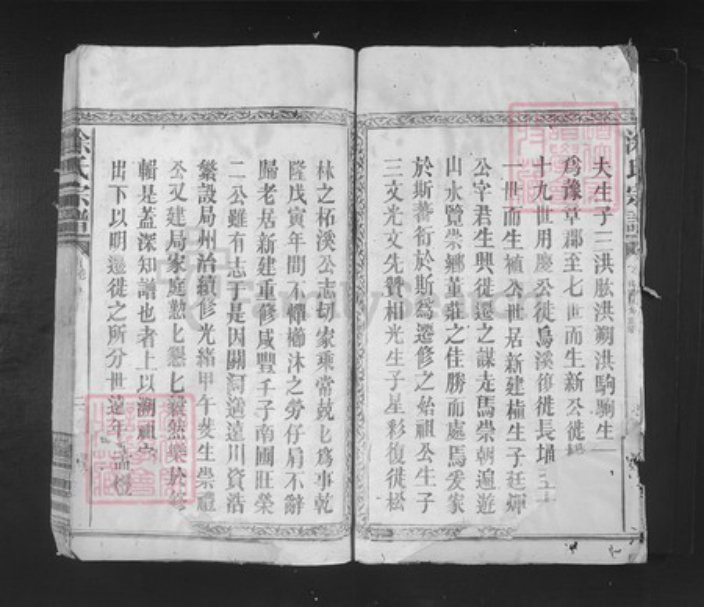 夫生子三洪肱洪朔洪駒駒生
為豫章郡至七世而生新公徙
十九世用慶公徙烏溪復徙長埔
一世而生植公世居新建植生子廷煇
公字君生興徙遷之謀走馬崇朝遍遊
山水覽崇鄉董莊之佳勝而處焉爰家
於斯蕃衍於斯為遷修之始祖公生子
三文光文先贊相光生子星彩復徙松
林之柘溪公志切家乘常兢匕為事乾
隆戊寅年間不憚櫛沐之勞仔肩不辭
歸老居新建重修咸豐千子南圃莊榮
二公雖有志于是因關河遙遠川資浩
繁設局州治續修光緒甲午爕生崇禮
公又建局家庭懃匕懇匕毅然樂於修
輯是蓋深知譜也者上以溯祖宗
出下以明遷徙之所分世遠年
涂氏宗譜
涂氏宗譜
FamilySearch